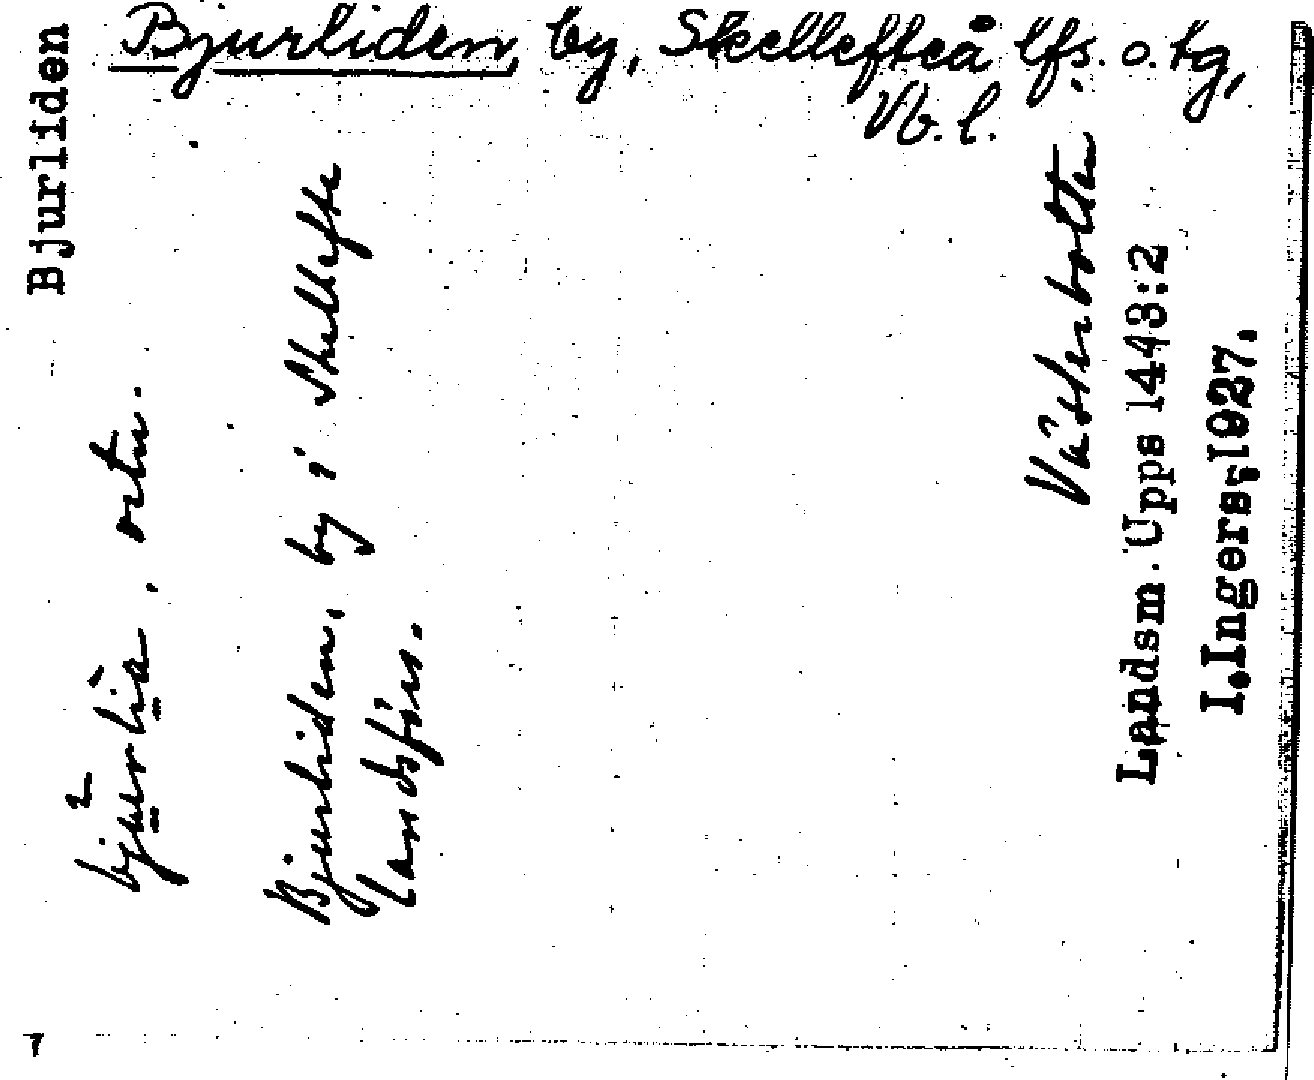 Bjurliden, by, Skellefteå lfs. o. tg,
Vb. l.
Bjurliden
bjurlia, ortn.
Bjurliden, by i Skellefte
landsförs.
Västerbotten
Landsm. Upps 1443:2
I. Ingers, 1927.
7